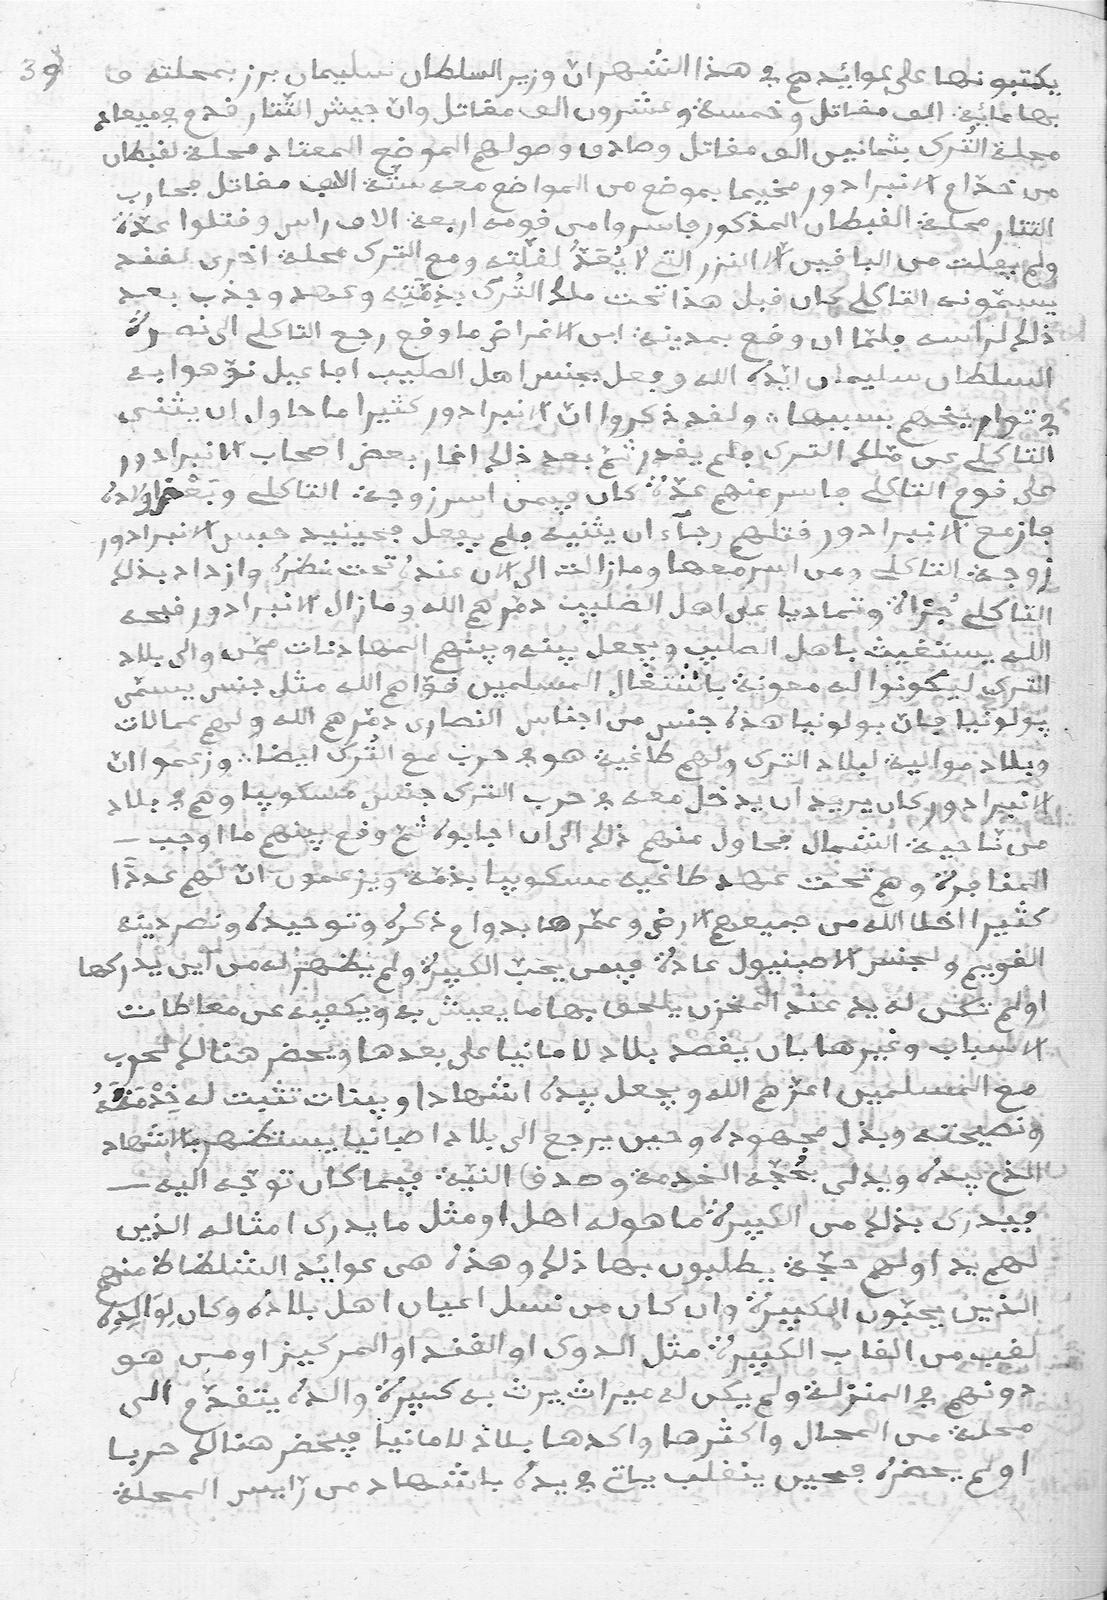 39
يكتبونها على عوائدهم في هذا الشهر ان وزير السلطان سليمان برز بمحلته و
بها مائة الف مقاتل وخمسة وعشرون الف مقاتل وان جيش التتار قدم في ميعاد
محلة الترك بثمانين الف مقاتل وصادف وصولهم الموضع المعتاد محلة لقبطان
من خدّام الانبرادور مخيما بموضع من المواضع معه ستّة الاف مقاتل فحارب
التتار محلة القبطان المذكور فاسروا من قومه اربعة الاف راس وقتلوا عدّة
ولم يفلت من الباقين الّا النزر الذي لا يُعَدّ لقلّته ومع الترك محلة اخرى لقند
يسمّونه التاكلي كان قبل هذا تحت ملك التُرك بذمّتِه وعهده وجذب بعد
ذلك لراسه فلمّا ان وقع بمدينة ابن الاغراض ما وقع رجع التاكلي الى نصرة
السلطان سليمان ايّدهُ الله وفعل بجنس اهل الصليب افاعيل نوّهوا به
في تواريخهم بسببها: ولقد ذكروا انّ الانبرادور كثيرا ما حاول ان يثني
التاكلي عن مّلك الترك فلم يقدر ثمّ بعد ذلك اغار بعض اصحاب الانبرادور
على قوم التاكلي فاسر منهم عدّة كان فيمن اسر زوجة التاكلي وبَعْض اولاده
فازمع الانبرادور قتلهم رجآء ان يثنيه فلم يفعل فحينيد حبس الانبرادور
زوجة التاكلي ومن اسر معها ومازالت الى الان عنده تحت نضره وازداد بذلك
التاكلي جُرْأة وتماديا على اهل الصليب دمّرهم الله ومازال الانبرادور قبحه
الله يستغيث باهل الصليب ويجعل بينه وبينهم المهادنات ممّن والى بلاد
الترك ليكونوا له معونة باشتغال المسلمين قوّاهم الله مثل جنس يسمّى
پولونيا فان بولونيا هذه جنس من اجناس النصارى دمّرهم الله ولهم عمالات
وبلاد موالية لبلاد الترك ولهم طاغية هو في حرب مع التُرك ايضا: وزعموا انّ
الانبرادور كان يريد ان يدخل معه في حرب الترك جنس مسكوبيا وهم في بلاد
من ناحية الشمال فحاول منهم ذلك الى ان اجابوه ثمّ وقع بينهم ما اوجب
المنافرة وهم تحت عهد طاغية مسكوبيا بذمّة ويزعمون انّ لهم عددًا
كثيرا اخلا الله من جميعهم الارض وعمّرها بدوام ذكره وتوحيده ونصر دينه
القويم ولجنس الاصبنيول عادة فيمن يحبّ الكبيرة ولم يظهر له من اين يدركها
او لم تكن له يد عند المخزن يلحق بها ما يعيش به ويكفيه عن معاطات
الاسباب وغيرها بان يقصد بلاد لامانيا على بعدها ويحضر هنالك لحرب
مع المسلمين اعزّهم الله ويجعل بيده اشهادا وبينات تثبت له خِدْمَتَهُ
ونصيحته وبذل مجهوده وحين يرجع الى بلاد اصبانيا يستظهر بالاشهاد
الذي بيده ويدلى بحُجّة الخدمة وصدق النيّة فيما كان توجّه اليه
فيدرى بذلك من الكبيرة ما هو له اهل او مثل ما يدرى امثاله الذين
لهم يد او لهم حجّة يطلبون بها ذلك وهذه هي عوائد الشلظاظ منهم
الذين يحبّون الكبيرة وان كان من نسل اعيان اهل بلاده وكان لِوَالِدِهِ
لقب من القاب الكبيرة مثل الدوك او القند او المركيز او من هو
دونهم في المنزلة ولم يكن له ميراث يرث به كبيرة والده يتقدّم الى
محلة من المحال واكثرها واكدها بلاد لامانيا فيحضر هنالك حربا
او لم يحضره فحين ينقلب ياتي في يده باشهاد من رايس المحلة